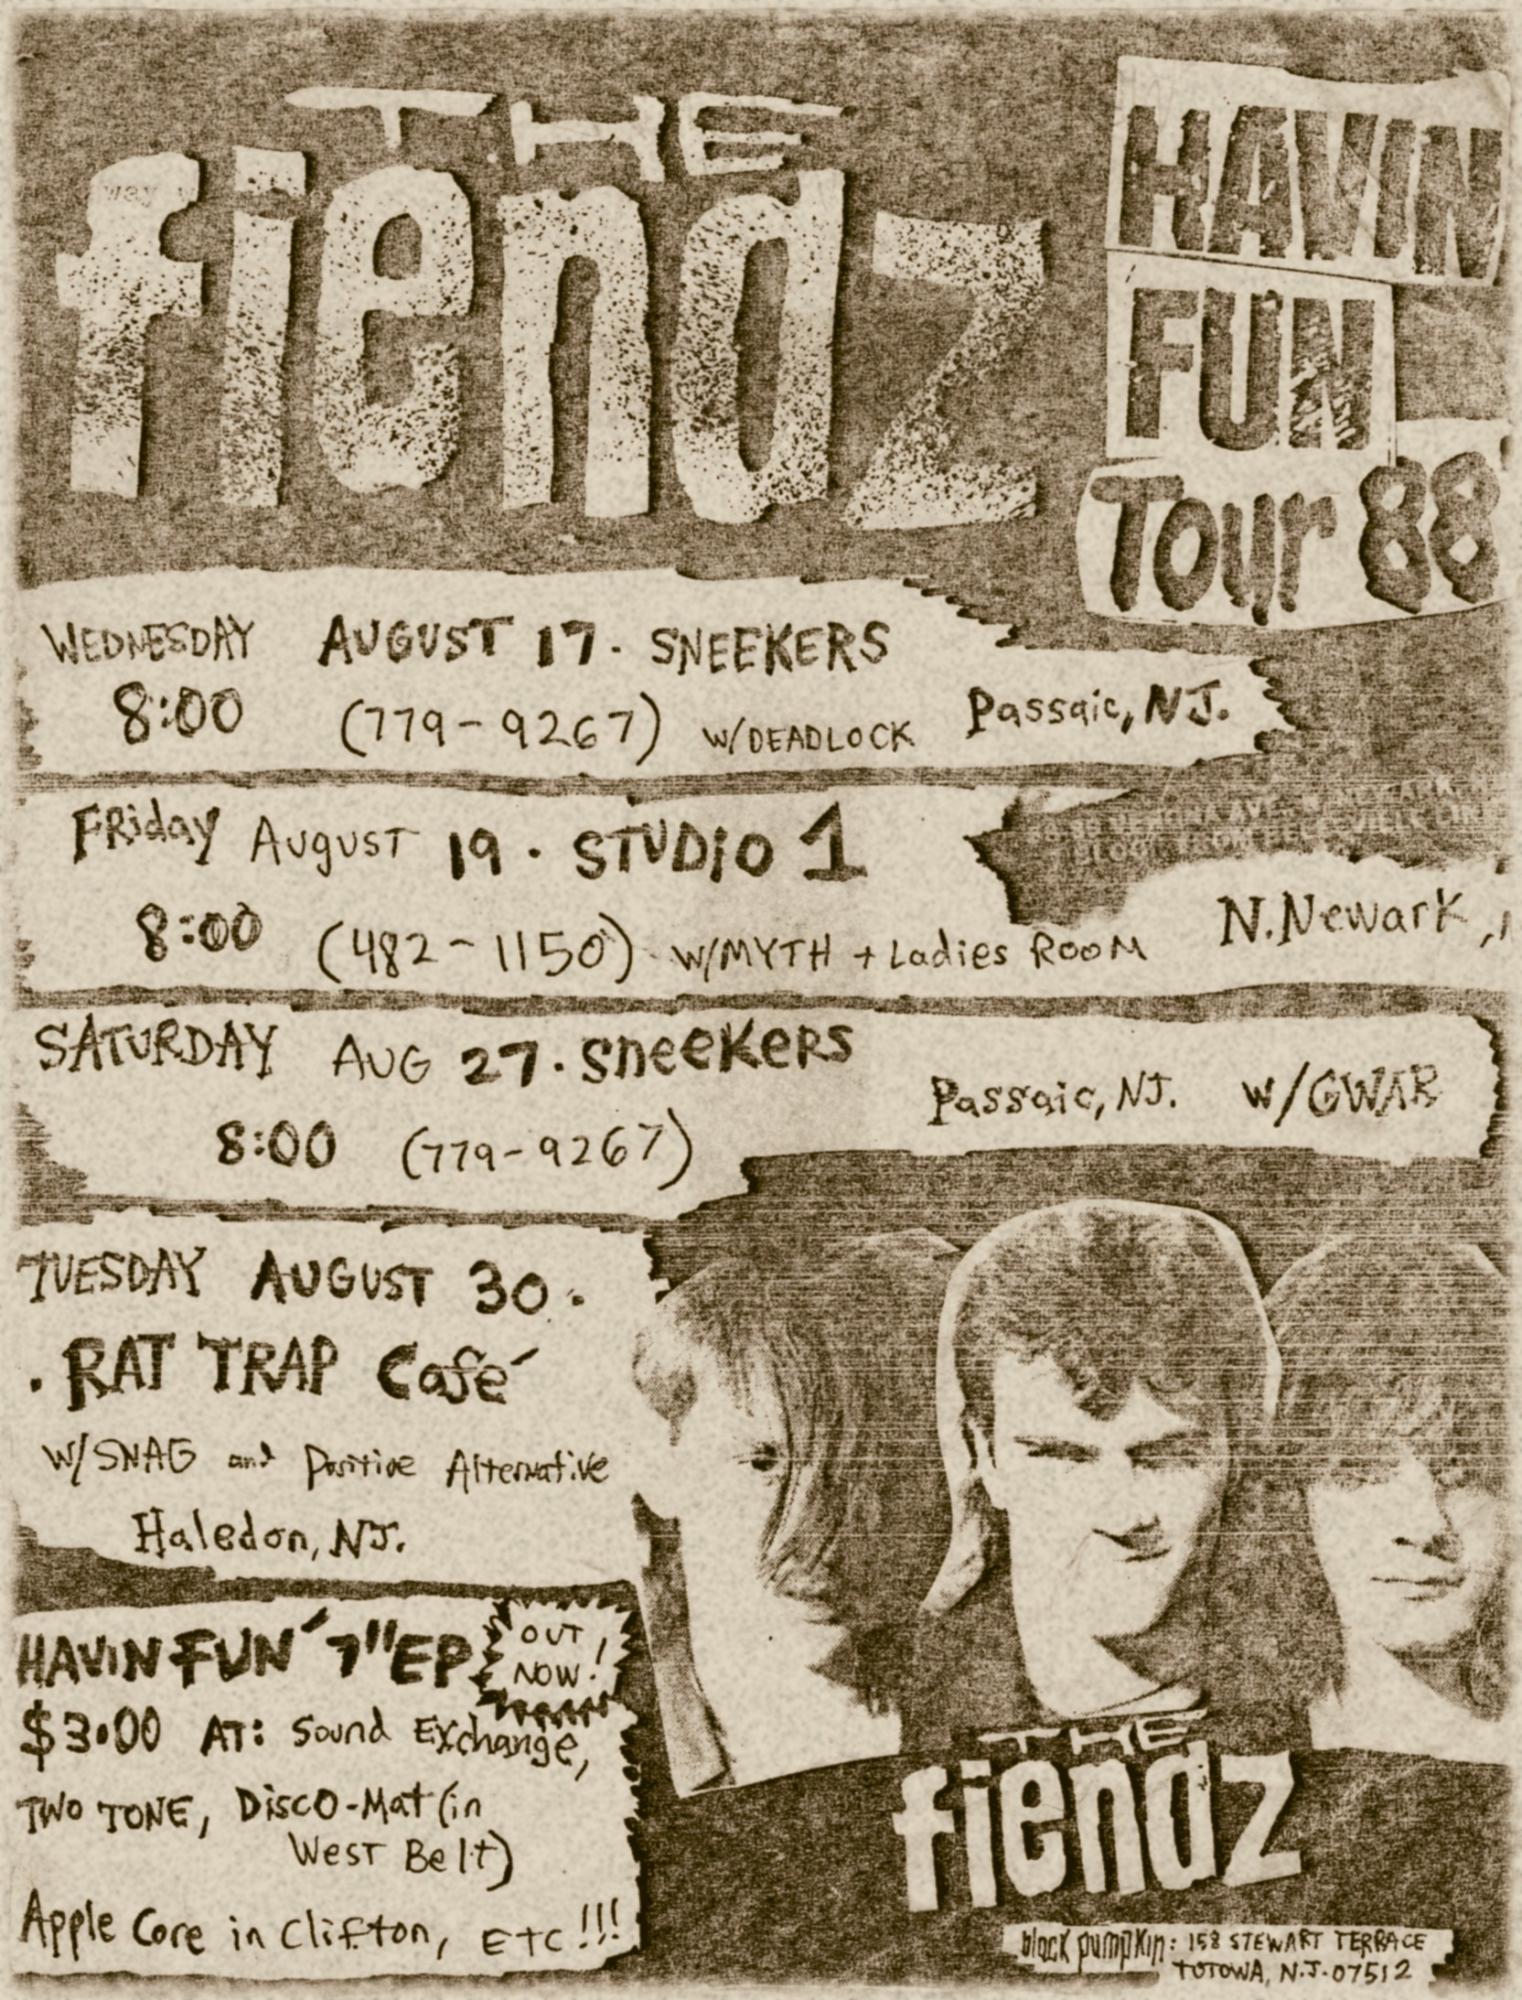 THE
fiendz
HAVIN
FUN
Tour 88
WEDNESDAY AUGUST 17. SNEEKERS
8:00 (779-9267) w/DEADLOCK Passaic, NJ.
FRiday August 19 · STUDiO 1
8:00 (482-1150) w/MYTH + Ladies ROOM N.Newark,
SATURDAY AUG 27. SneeKeRS
8:00 (779-9267) Passaic, NJ. w/GWAR
TUESDAY AUGUST 30.
. RAT TRAP Café
w/SNAG and Positive Alternative
Haledon, NJ.
HAVIN FUN 7" EP
OUT
NOW!
$3.00 AT: Sound Exchange,
TWO TONE, DiSCO-Mat (in
West Belt)
Apple Core in Clifton, ETC!!!
THE
fiendz
black pumpkin: 158 STEWART TERRACE
TOTOWA, N.J. 07512